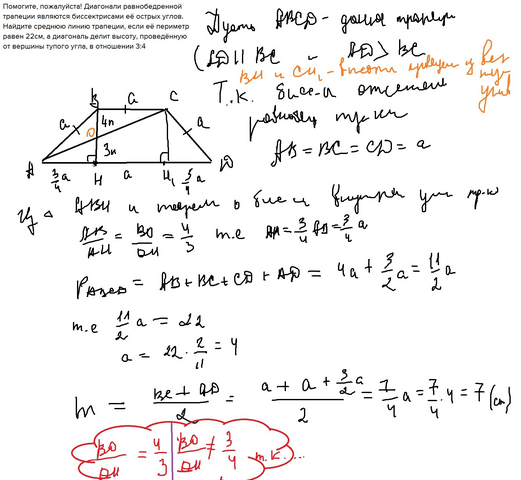 Помогите, пожалуйста! Диагонали равнобедренной
трапеции являются биссектрисами её острых углов.
Найдите среднюю линию трапеции, если её периметр
равен 22см, а диагональ делит высоту, проведённую
от вершины тупого угла, в отношении 3:4
Пусть ABCD - данная
(AD || BC и AD > BC
BH и CH₁ - высоты из
Т.к. отсекает
AB = BC = CD = a
B a C
4n
a O a
3n
A H a H₁ D
3/4 a 3/4 a
Из △ ABH и
AB/AH = BO/OH = 4/3 т.е AH = 3/4 AB = 3/4 a
P_ABCD = AB + BC + CD + AD = 4a + 3/2 a = 11/2 a
т.е 11/2 a = 22
a = 22 · 2/11 = 4
m = BC + AD / 2 = a + a + 3/2 a / 2 = 7/4 a = 7/4 · 4 = 7 (см)
BO/OH = 4/3 BO/OH ≠ 3/4 т.к. ...